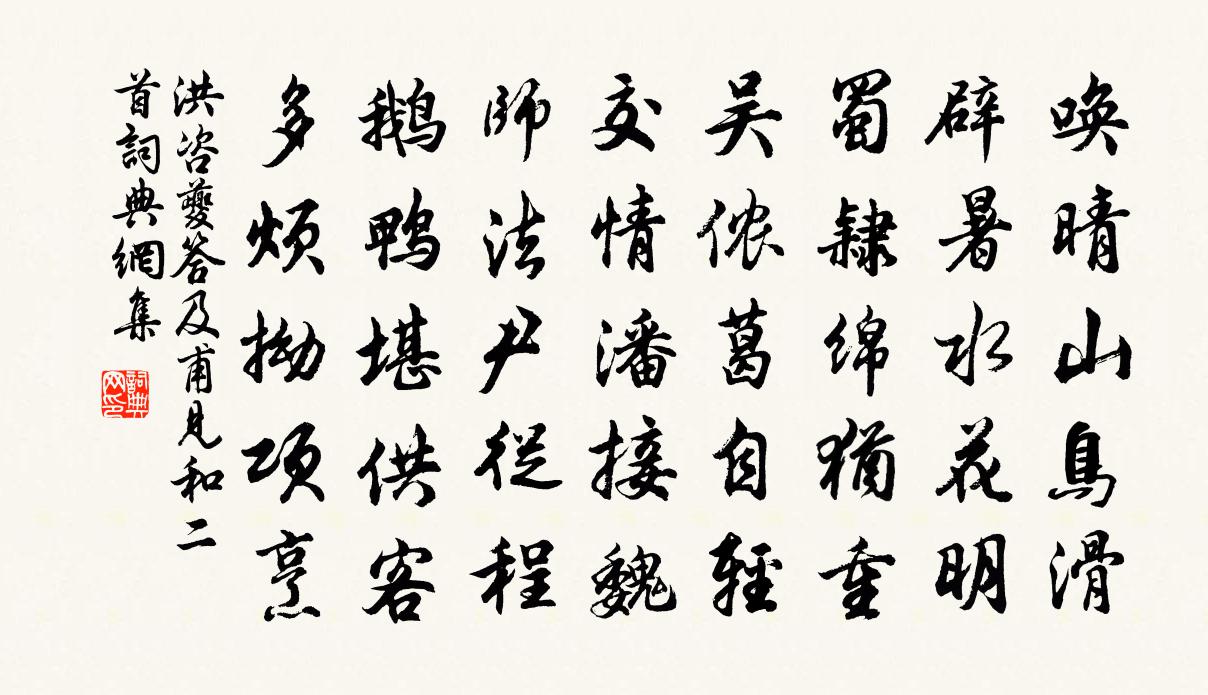 唤晴山鳥滑
辟暑水花明
蜀隸绵猶重
吴侬葛自輕
交情潘接魏
師法尹從程
鹅鸭堪供客
多烦拗项烹
洪咨夔答及甫見和二
首詞典網集
詞典
网印